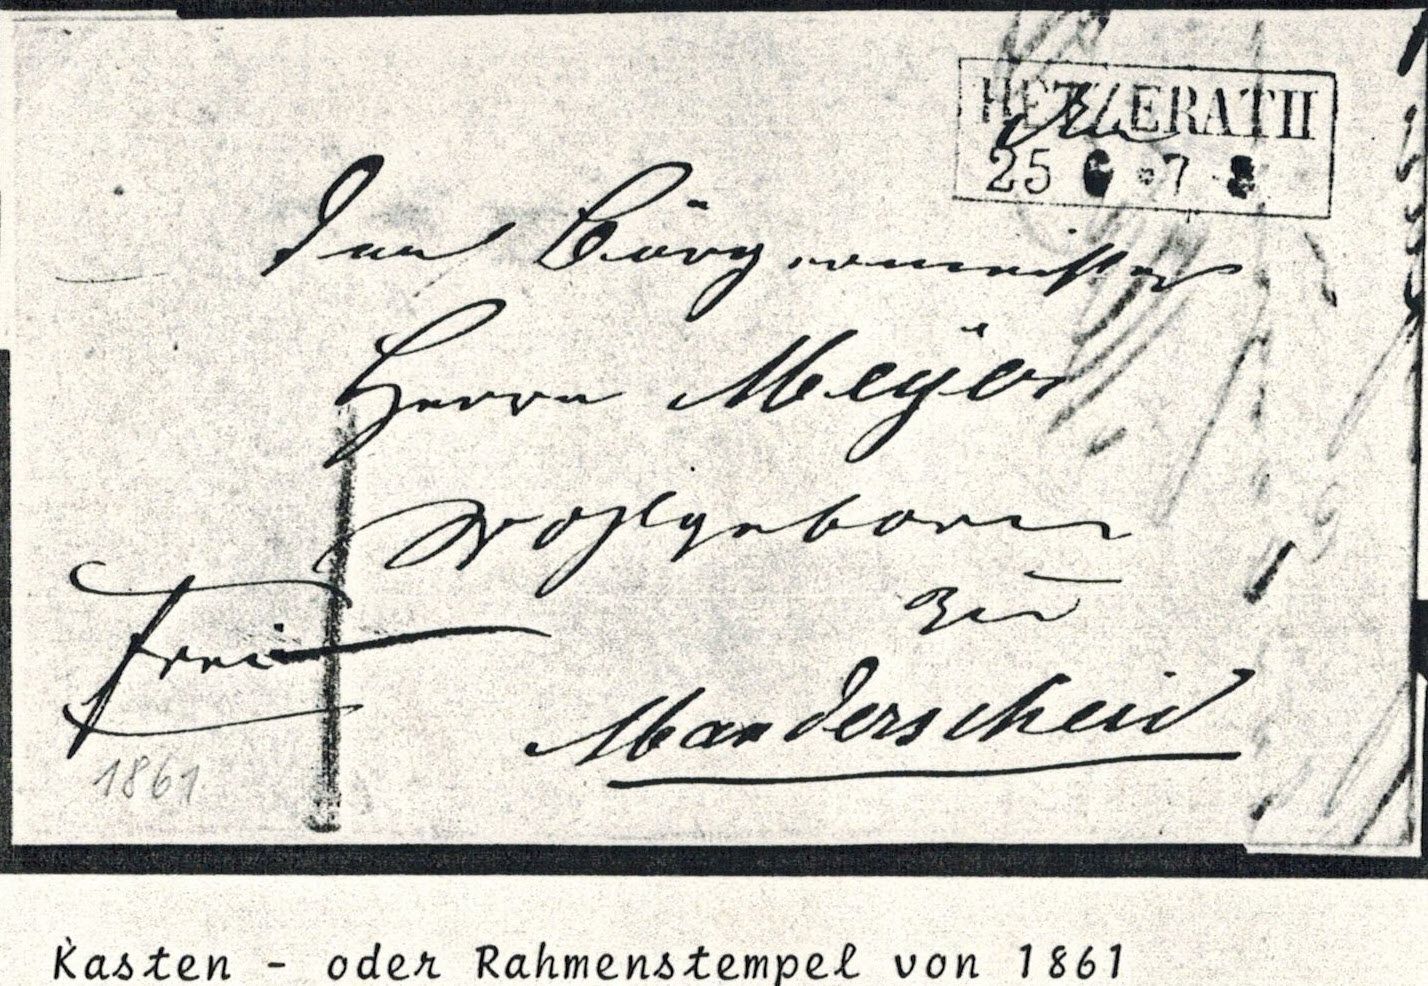 HETZERATH
25 6 * 7 8
An
den Bürgermeister
Herrn Meÿer
Wohlgeboren
zu
Frei
Manderscheid
1861
Kasten - oder Rahmenstempel von 1861